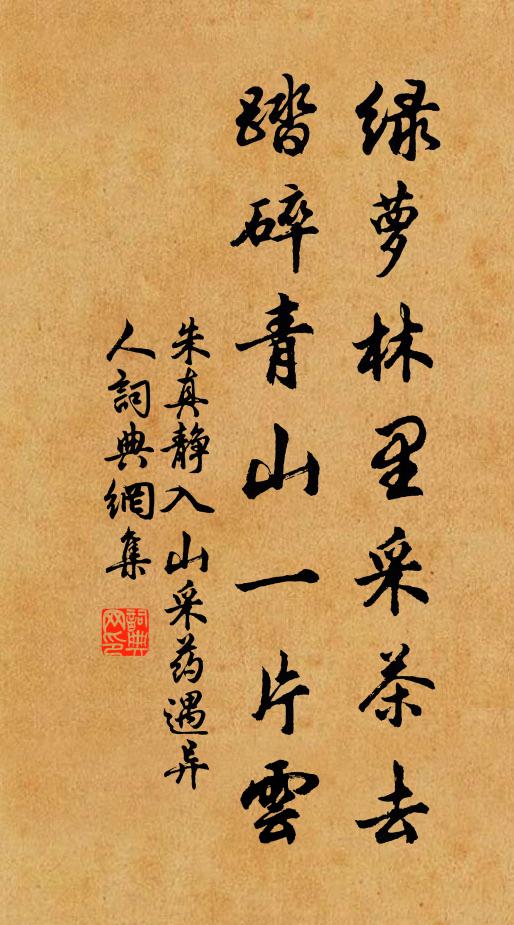 绿萝林里采茶去
踏碎青山一片雲
朱真静入山采药遇异
人詞典網集
詞典
网印